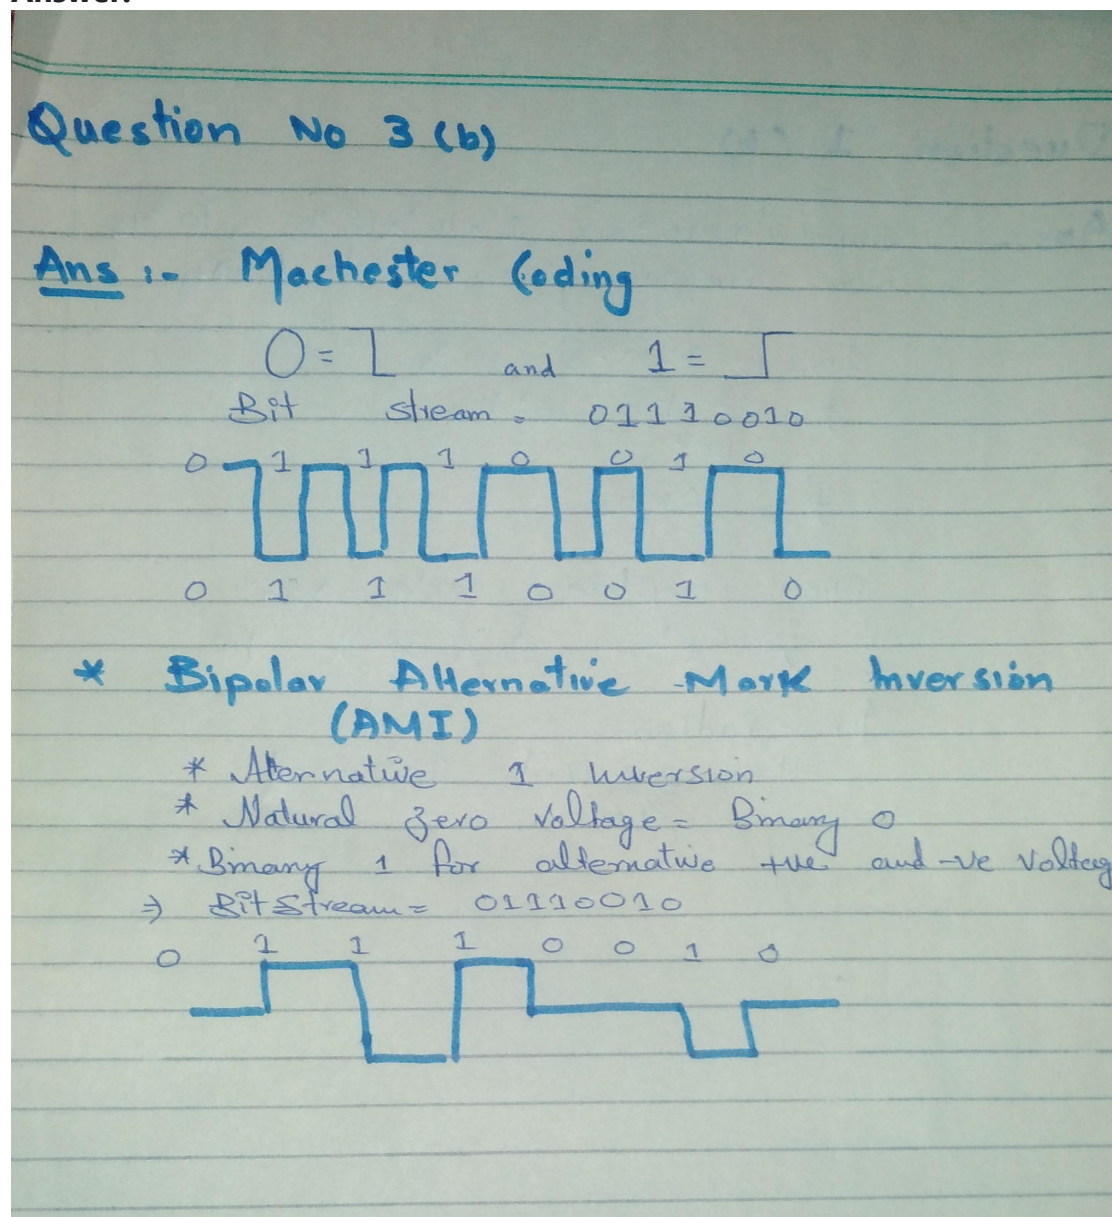 Answer:
Question No 3 (b)
Ans :- Machester Coding
0 = and 1 =
Bit stream = 01110010
0 1 1 1 0 0 1 0
0 1 1 1 0 0 1 0
* Bipolar Alternative Mark Inversion
(AMI)
* Alternative 1 Inversion
* Natural zero voltage = Binary 0
* Binary 1 for alternative +ve and -ve voltag
⇒ Bit Stream = 01110010
0 1 1 1 0 0 1 0